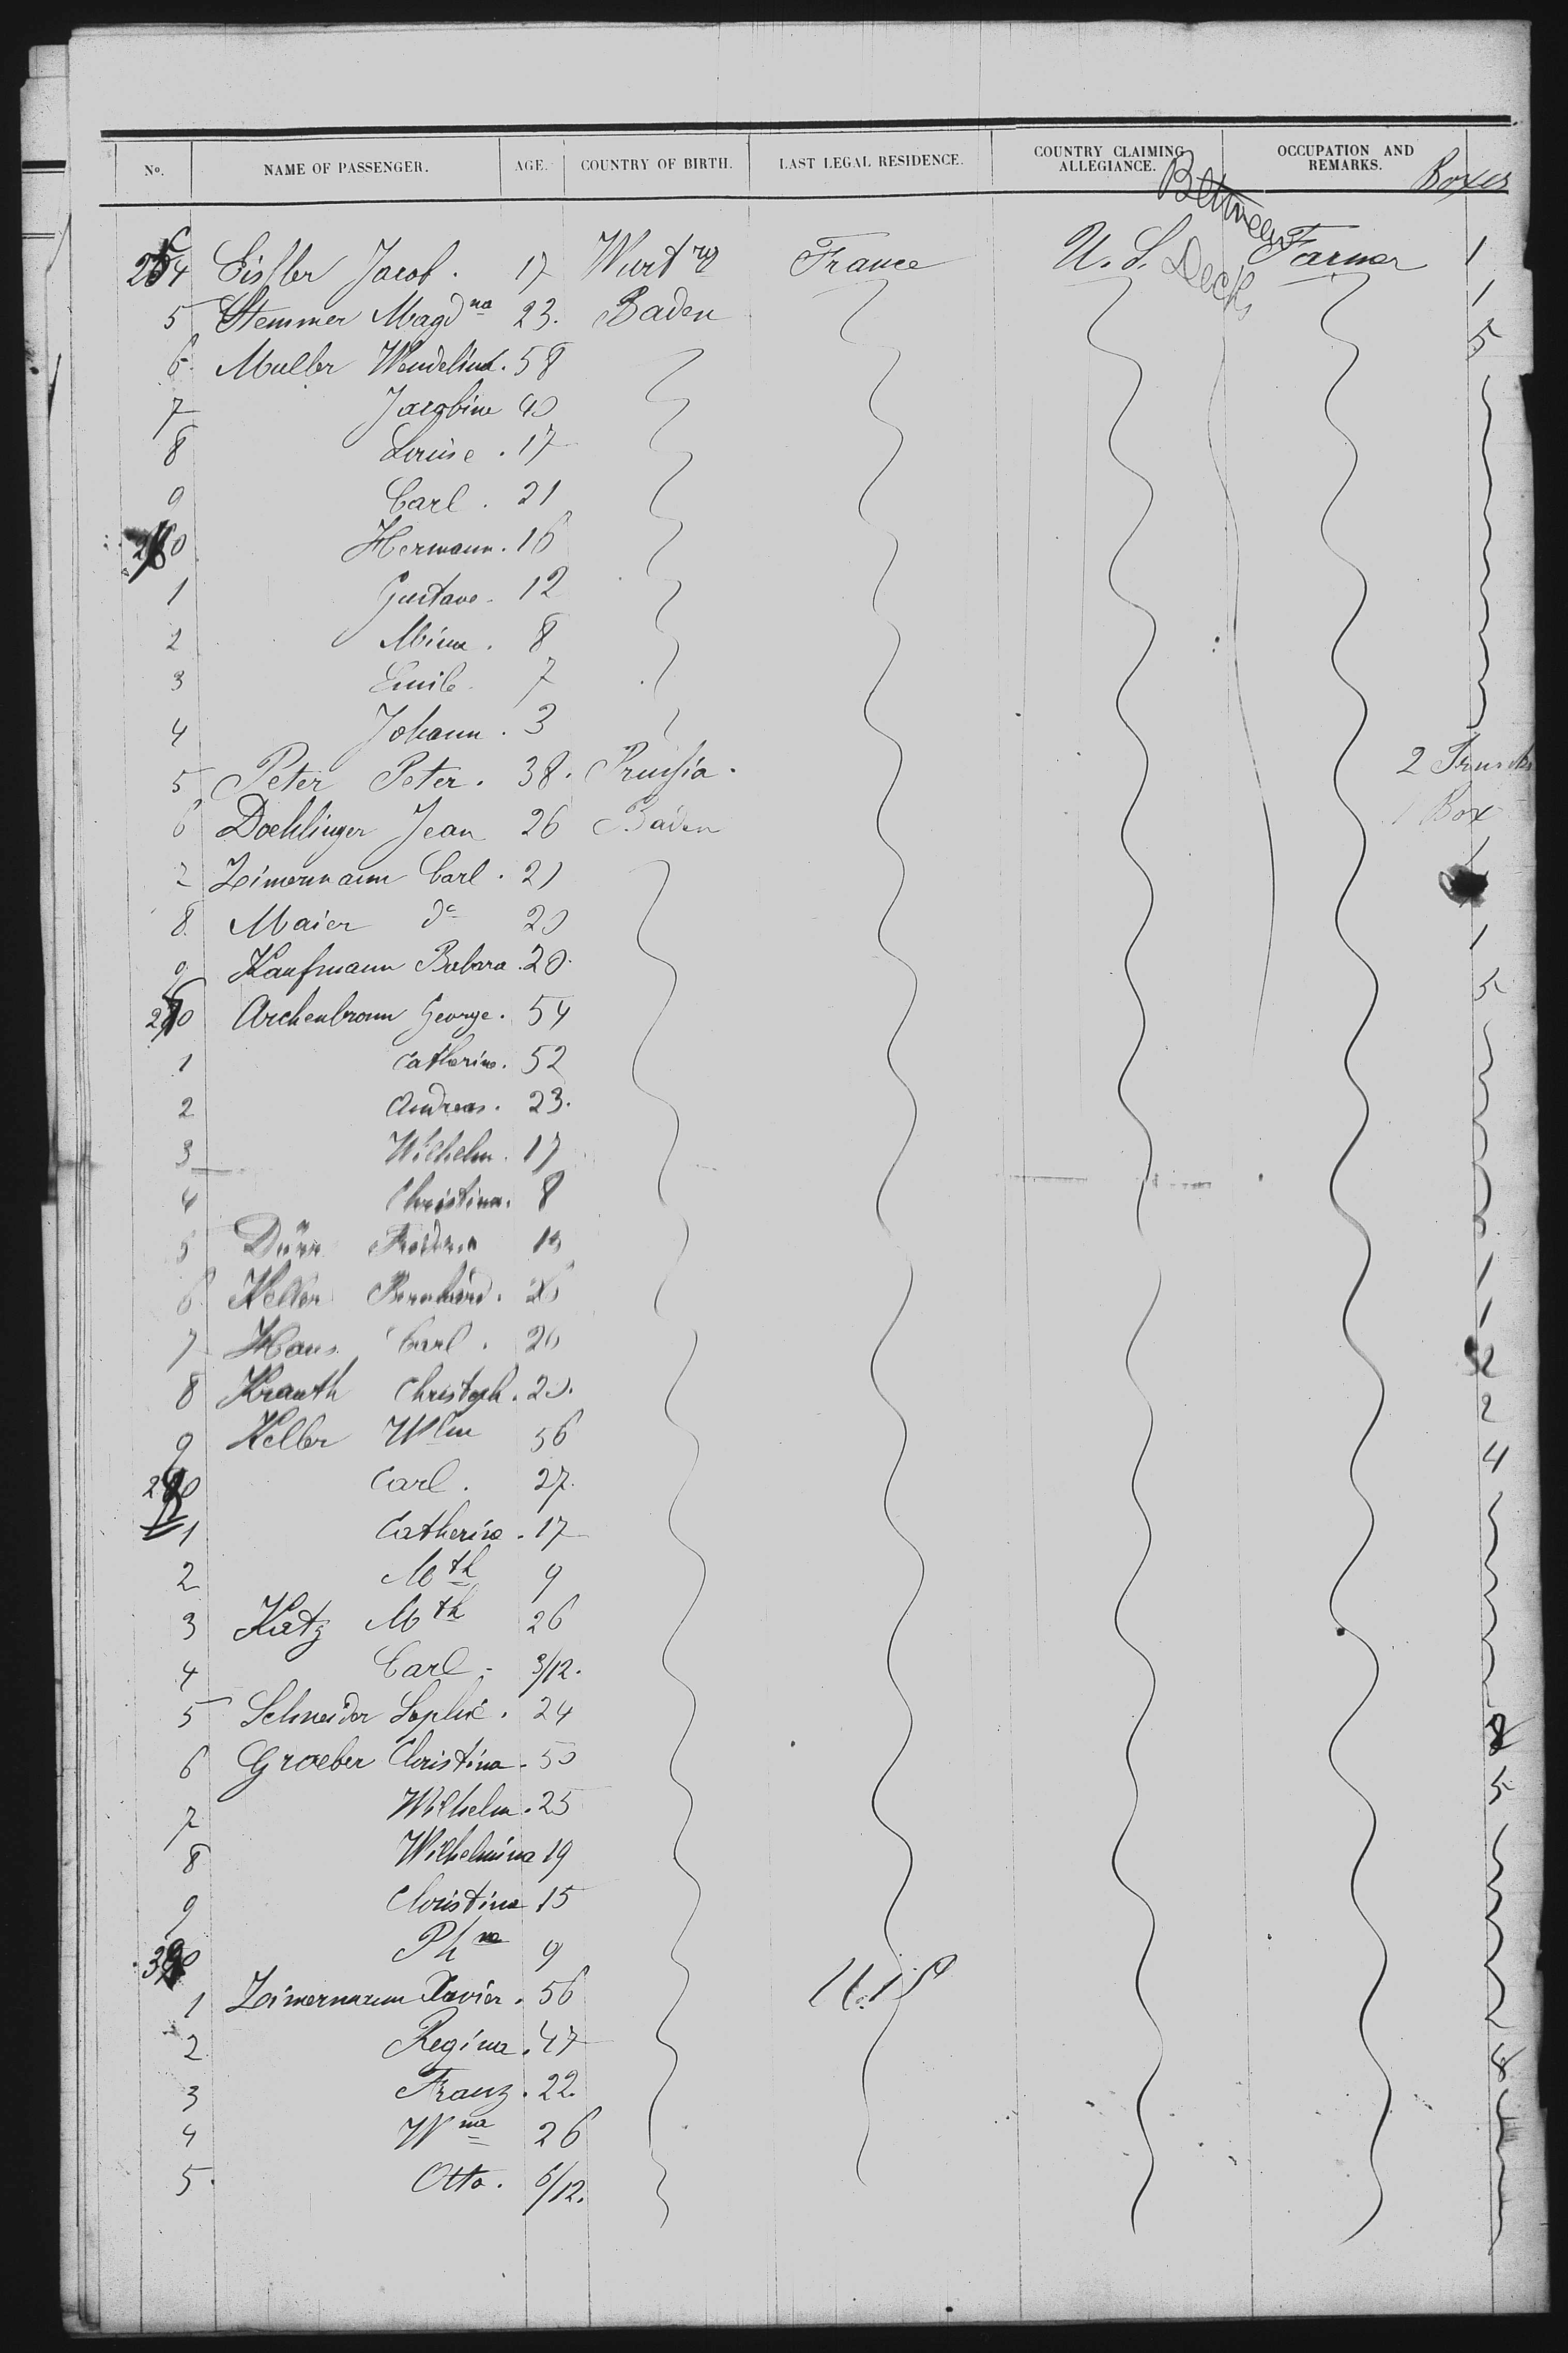 No. NAME OF PASSENGER. AGE. COUNTRY OF BIRTH. LAST LEGAL RESIDENCE. COUNTRY CLAIMING ALLEGIANCE. OCCUPATION AND REMARKS. Boxes
Between Decks
254 Jacob. 17 Wurtrg France U.S. Farmer 1
5 Stemmer Magdna 23. Baden 1
6 Muller 58 5
7 Jacobine 40
8 Louise. 17
9 Carl. 21
260 Hermann. 16
1 Gustave. 12
2 Mina. 8
3 Emile. 7
4 Johann. 3
5 Peter Peter. 38. Prussia. 2 Trunks
6 Doehlinger Jean 26 Baden 1 Box
7 Zimermann Carl. 21
8 Maier do 20 1
9 Kaufmann Babara. 20. 5
270 Archenbronn George. 54
1 Catherine. 52
2 Andreas. 23.
3 Wilhelm. 17
4 Christina. 8
5 Dürr
6 Keller Bernhard. 1
7 Carl. 20
8 Krauth Christoph. 20. 2
9 Keller Wlm 56 4
280 Carl. 27.
1 Catherine. 17
2 Mth 9
3 Katz Mth 26
4 Carl. 3/12.
5 Schneider Sophie. 24
6 Groeber Christina. 50 5
7 Wilhelm. 25
8 Wilhelmina 19
9 Christina 15
Phne 9
1 Zimermann Xavier. 56 U.S
2 Regina. 47
3 Franz. 22.
4 Wna 26
5 Otto. 6/12.